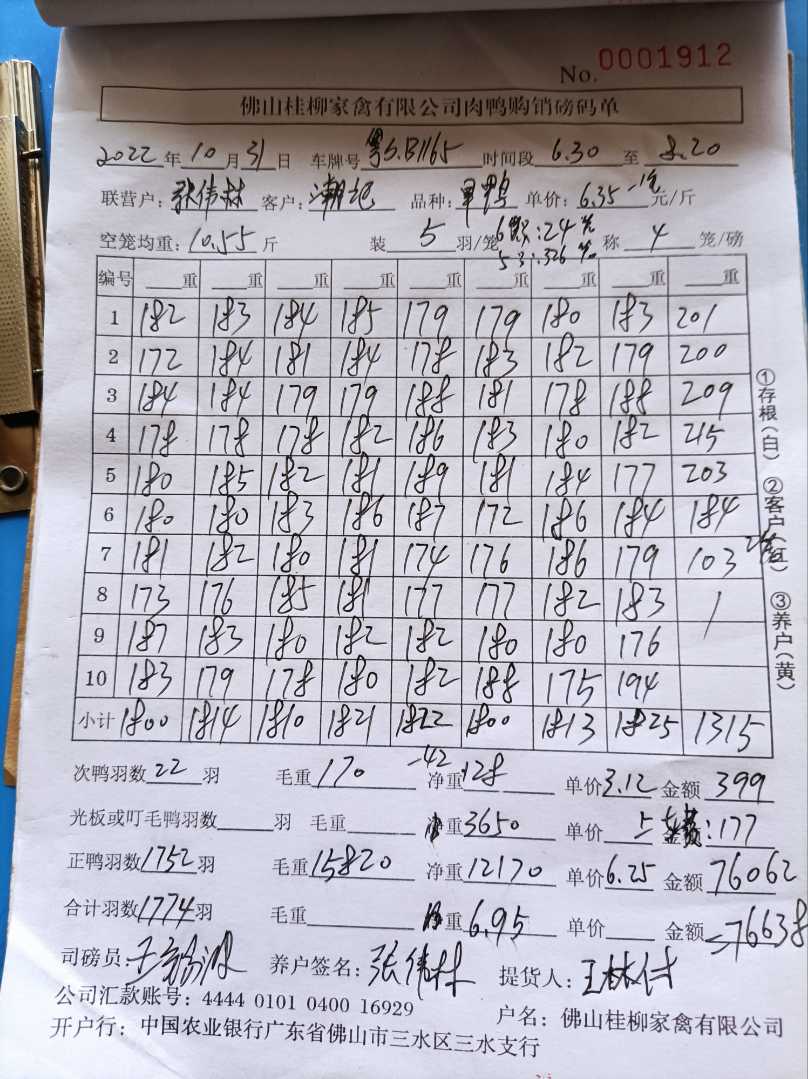 No. 0001912
佛山桂柳家禽有限公司肉鸭购销磅码单
2022年10月31日 车牌号 粤S.B1165 时间段 6.30 至 8.20
联营户：张伟林 客户： 品种： 单价：6.35 元/斤
空笼均重：10.55斤 装 5 羽/笼 称 4 笼/磅
编号 重 重 重 重 重 重 重 重 重
1 182 183 184 185 179 179 180 183 201
2 172 184 181 184 178 183 182 179 200
3 184 184 179 179 188 181 178 188 209
4 178 178 178 182 186 183 180 182 215
5 180 185 182 181 189 181 184 177 203
6 180 180 183 186 187 172 186 184 184
7 181 182 180 181 174 176 186 179 103
8 173 176 185 181 177 177 182 183
9 187 183 180 182 182 180 180 176
10 183 179 178 180 182 188 175 194
小计 1800 1814 1810 1821 1822 1800 1813 1825 1315
次鸭羽数 22 羽 毛重 170 -42 净重 128 单价 3.12 金额 399
光板或叮毛鸭羽数 羽 毛重 重 3650 单价 :177
正鸭羽数 1752 羽 毛重 15820 净重 12170 单价 6.25 金额 76062
合计羽数 1774 羽 毛重 重 6.95 单价 金额 =76638
司磅员： 养户签名：张伟林 提货人：
公司汇款账号：4444 0101 0400 16929 户名：佛山桂柳家禽有限公司
开户行：中国农业银行广东省佛山市三水区三水支行
①存根（白） ②客户（红） ③养户（黄）